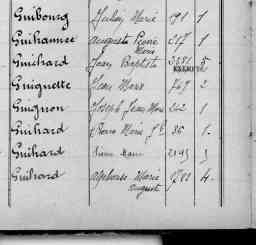 Guibourg Marie 191 1
Guihannee Auguste Pierre 217 1
Marie
Guihard Jean Baptiste 5
Guignette Jean Marie 769 2
Guignon Joseph Jean Marie 242 1
Guihard Pierre Marie 36 1
Guihard Pierre Marie 2195 3
Guihard Alphonse Marie 1788 4
August